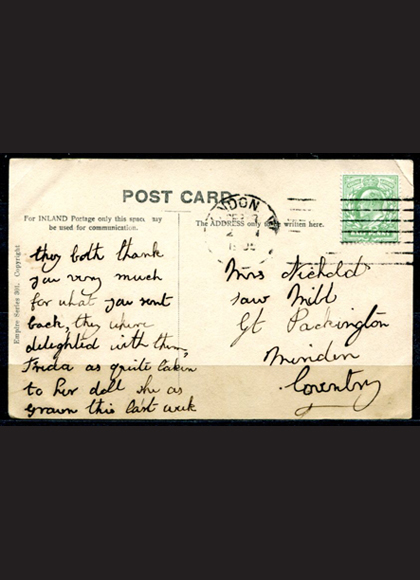 POST CARD
For INLAND Postage only this space may
be used for communication.
The ADDRESS only to be written here.
Empire Series 301. Copyright
they both thank
you very much
for what you sent
back, they where
delighted with them,
Frida as quite taken
to her doll she as
grown this last week
Mrs Nicholds
Saw Mill
Gt Packington
Coventry